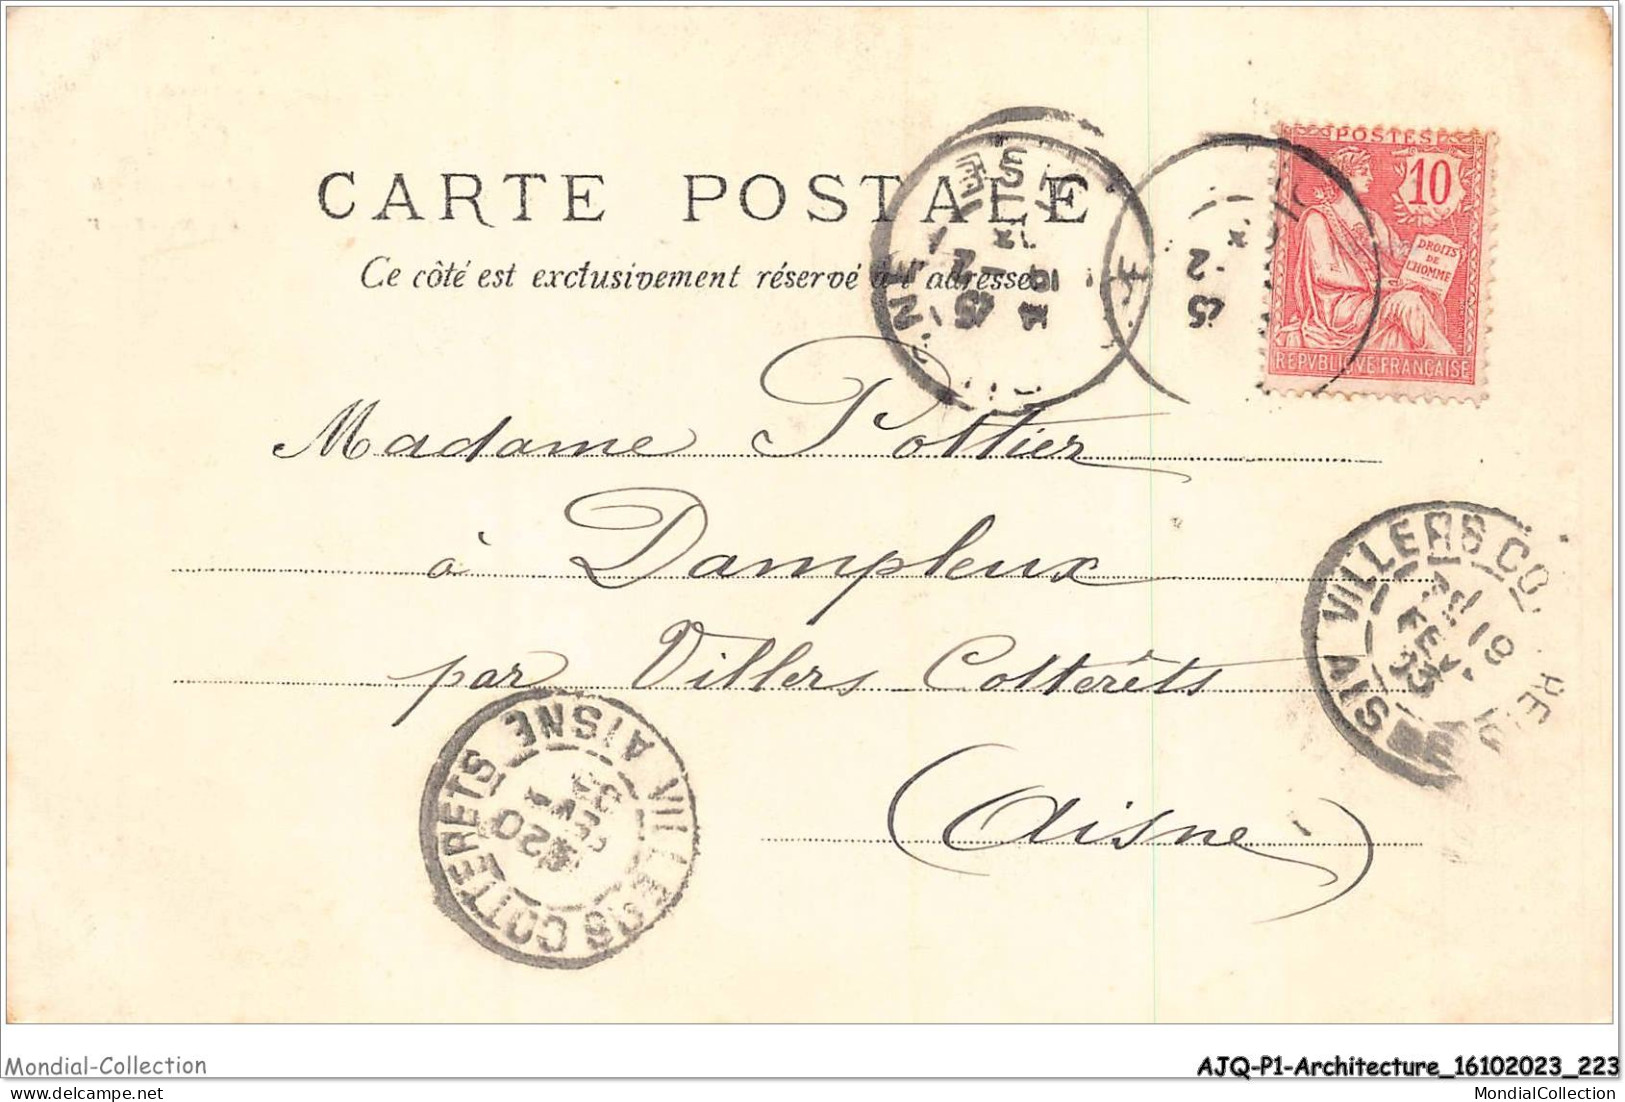 POSTES
10
DROITS
DE
L'HOMME
REPVBLIQVE FRANÇAISE
CARTE POSTALE
Ce côté est exclusivement réservé à l'adresse
Madame Pottier
à Dampleux
par Villers Cotterêts
(Aisne)
VILLERS COTTERETS AISNE
VILLERS CO
FEVR
Mondial-Collection
AJQ-P1-Architecture_16102023_223
MondialCollection